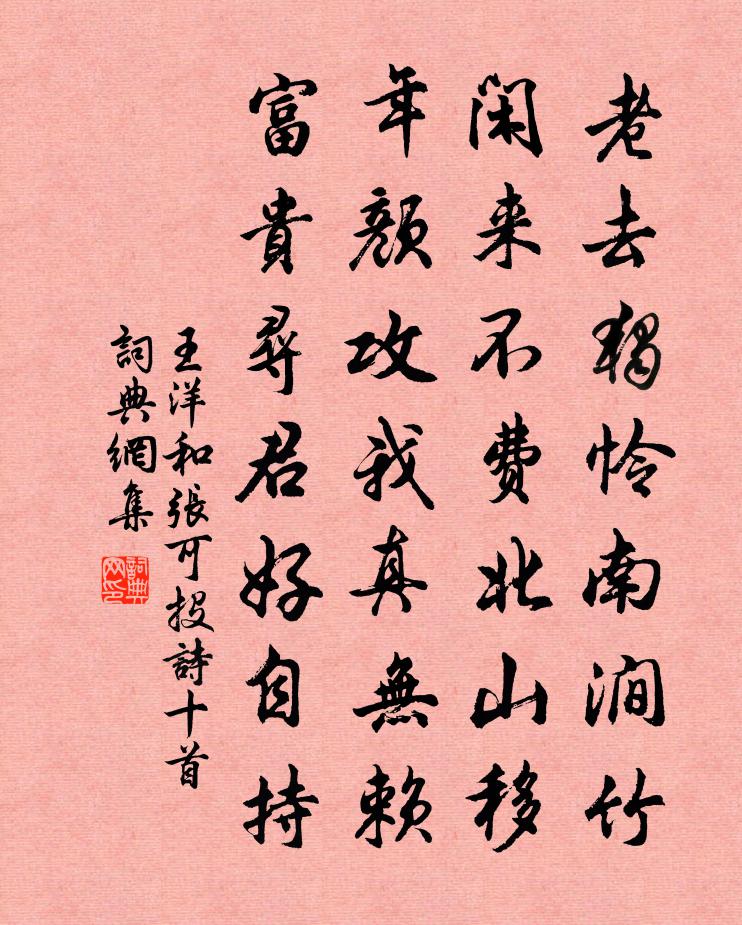 老去獨怜南澗竹
閑来不费北山移
年颜攻我真無赖
富貴尋君好自持
王洋和張可投詩十首
詞典網集
詞典網印